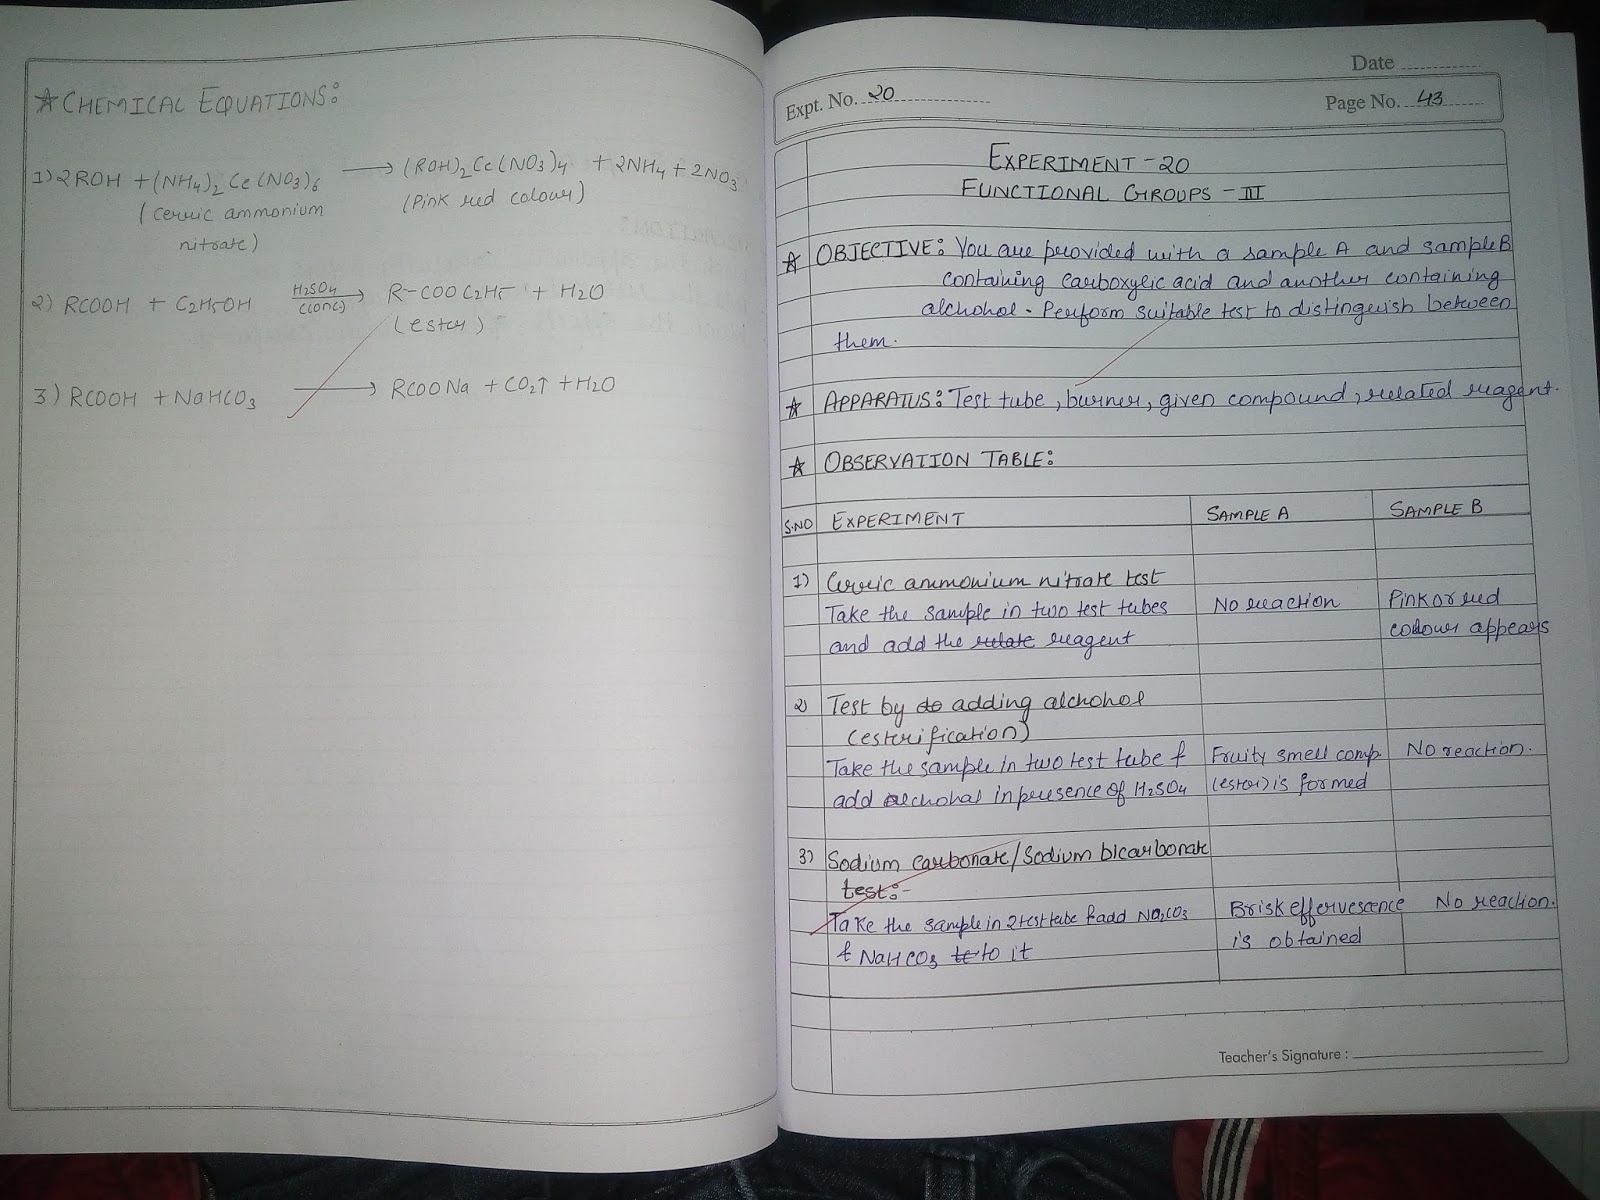 ☆ CHEMICAL EQUATIONS:
1) 2ROH + (NH4)2 Ce(NO3)6 ⟶ (ROH)2 Ce(NO3)4 + 2NH4 + 2NO3
(Cerric ammonium (Pink red colour)
nitrate)
2) RCOOH + C2H5OH H2SO4 (conc) ⟶ R-COOC2H5 + H2O
(ester)
3) RCOOH + NaHCO3 ⟶ RCOONa + CO2↑ + H2O
Date
Expt. No. 20
Page No. 43
EXPERIMENT-20
FUNCTIONAL GROUPS-III
☆ OBJECTIVE: You are provided with a sample A and sample B
containing carboxylic acid and another containing
alchohol. Perform suitable test to distinguish between
them.
☆ APPARATUS: Test tube, burner, given compound, related reagent.
☆ OBSERVATION TABLE:
S.NO EXPERIMENT SAMPLE A SAMPLE B
1) Cerric ammonium nitrate test
Take the sample in two test tubes No reaction Pink or red
and add the relate reagent colour appears
2) Test by do adding alchohol
(esterification)
Take the sample in two test tube & Fruity smell comp. No reaction.
add alchohal in presence of H2SO4 (ester) is formed
3) Sodium carbonate/Sodium bicarbonate
test:-
Take the sample in 2 test tube & add Na2CO3 Brisk effervescence No reaction.
& NaHCO3 te to it is obtained
Teacher's Signature :